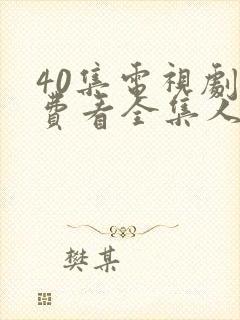 40集電視劇
費看全集人
樊某